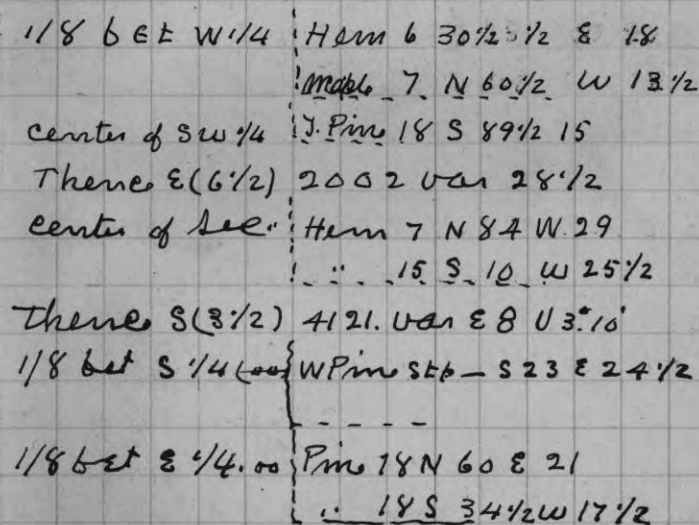 1/8 bet W 1/4 Hem 6 30 1/2 1/2 E 18
Maple 7 N 60 1/2 W 13 1/2
center of SW 1/4 J. Pine 18 S 89 1/2 15
Thence E (6 1/2) 2002 var 28 1/2
center of Sec. Hem 7 N 84 W 29
" 15 S 10 W 25 1/2
Thence S (3 1/2) 4121. var E 8 U 3° 10'
1/8 bet S 1/4 W Pine Stp - S 23 E 24 1/2
1/8 bet E 1/4 .00 Pine 18 N 60 E 21
" 18 S 34 1/2 W 17 1/2